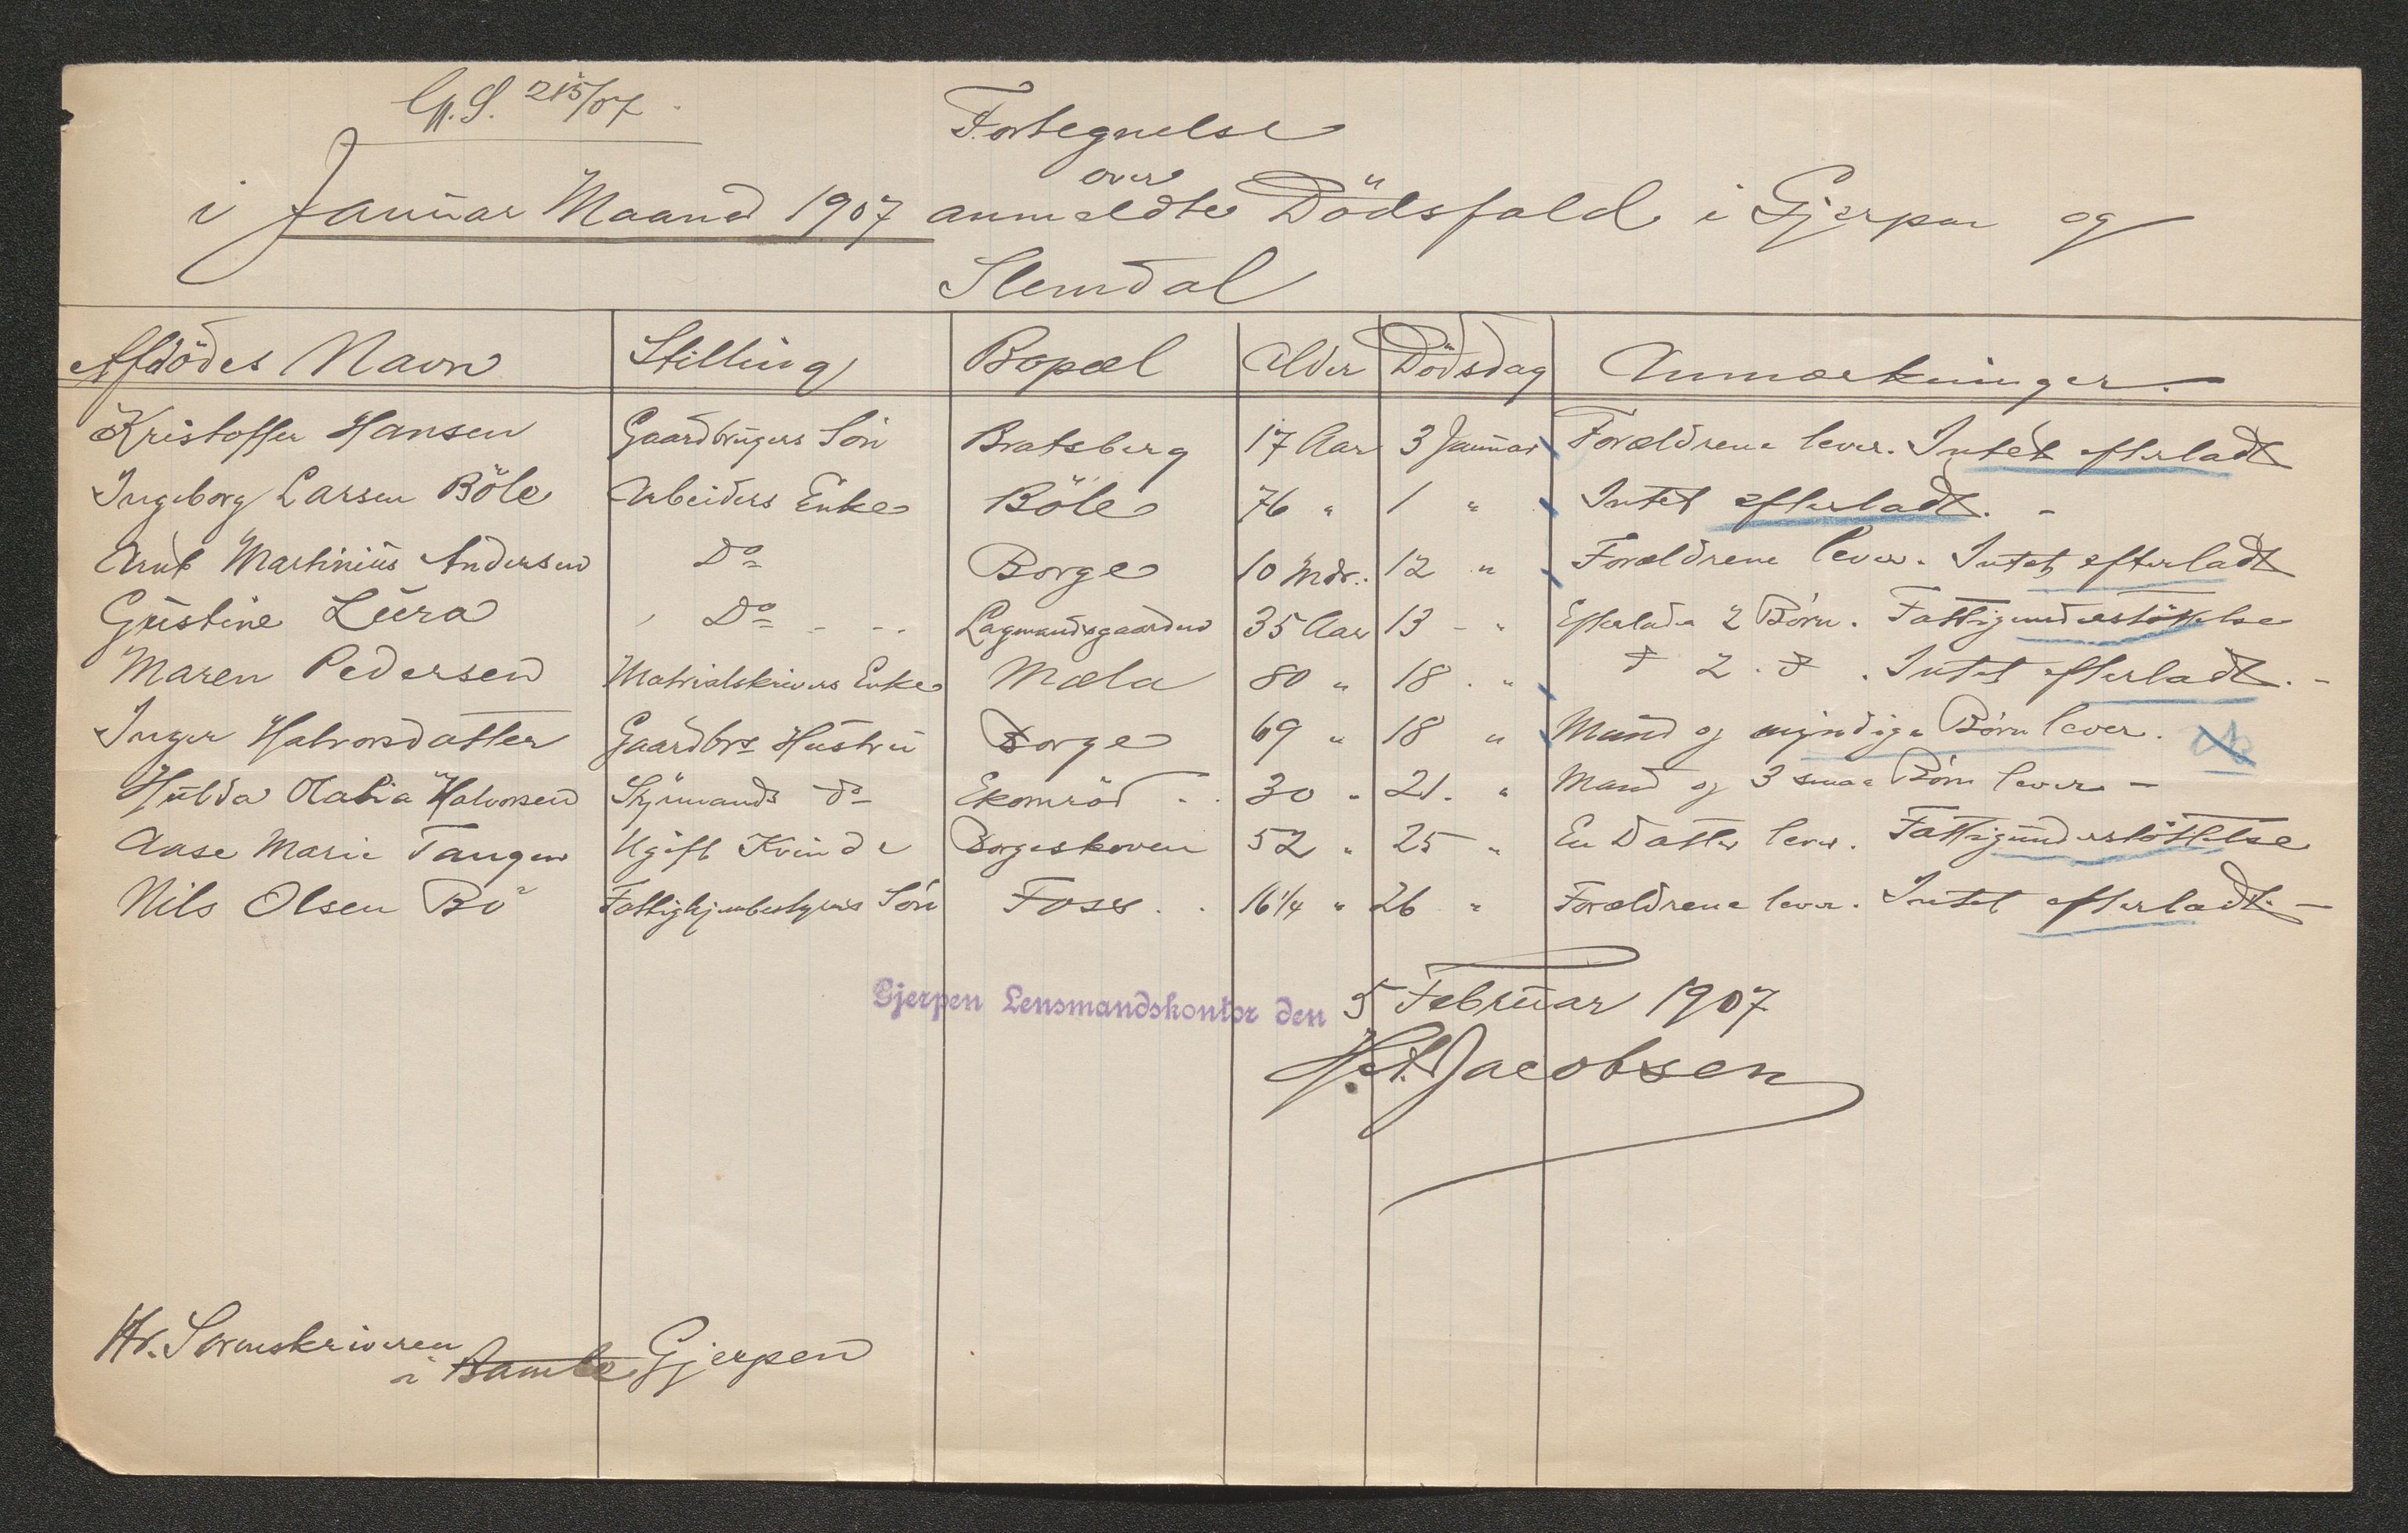 G.S. 215/07.
Fortegnelse
over
i Januar Maaned 1907 anmeldte Dödsfald i Gjerpen og
Slemdal
Afdödes Navn | Stilling | Bopæl | Alder | Dödsdag | Anmærkninger.
Kristoffer Hansen | Gaardbrugers Sön | Bratsberg | 17 Aar | 3 Januar | Forældrene lever. Intet efterladt
Ingeborg Larsen Böle | Arbeiders Enke | Böle | 76 " | 1 " | Intet efterladt. -
Arnt Martinius Andersen | Do | Borge | 10 Mdr. | 12 " | Forældrene lever. Intet efterladt
Gustine Lura | Do | Lagmandsgaarden | 35 Aar | 13 - " | Efterlader 2 Börn. Fattigunderstöttelse
Maren Pedersen | Matrialskrivers Enke | Mæla | 80 " | 18 . " | d 2. d . Intet efterladt. -
Inger Halvorsdatter | Gaardbrs Hustru | Borge | 69 " | 18 " | Mand og myndige Börn lever.
Hulda Olalia Halvorsen | Styrmands do | Ekornröd | 30 " | 21. " | Mand og 3 smaa Börn lever -
Aase Marie Tangen | Ugift Kvinde | Borgeskoven | 52 " | 25 " | En Datter lever. Fattigunderstöttelse
Nils Olsen Bö | Fattighjembestyrers Sön | Foss | 16 1/4 " | 26 " | Forældrene lever. Intet efterladt. -
Gjerpen Lensmandskontor den 5 Februar 1907
H. A. Jacobsen
Hr. Sorenskriveren
i Bamle Gjerpen